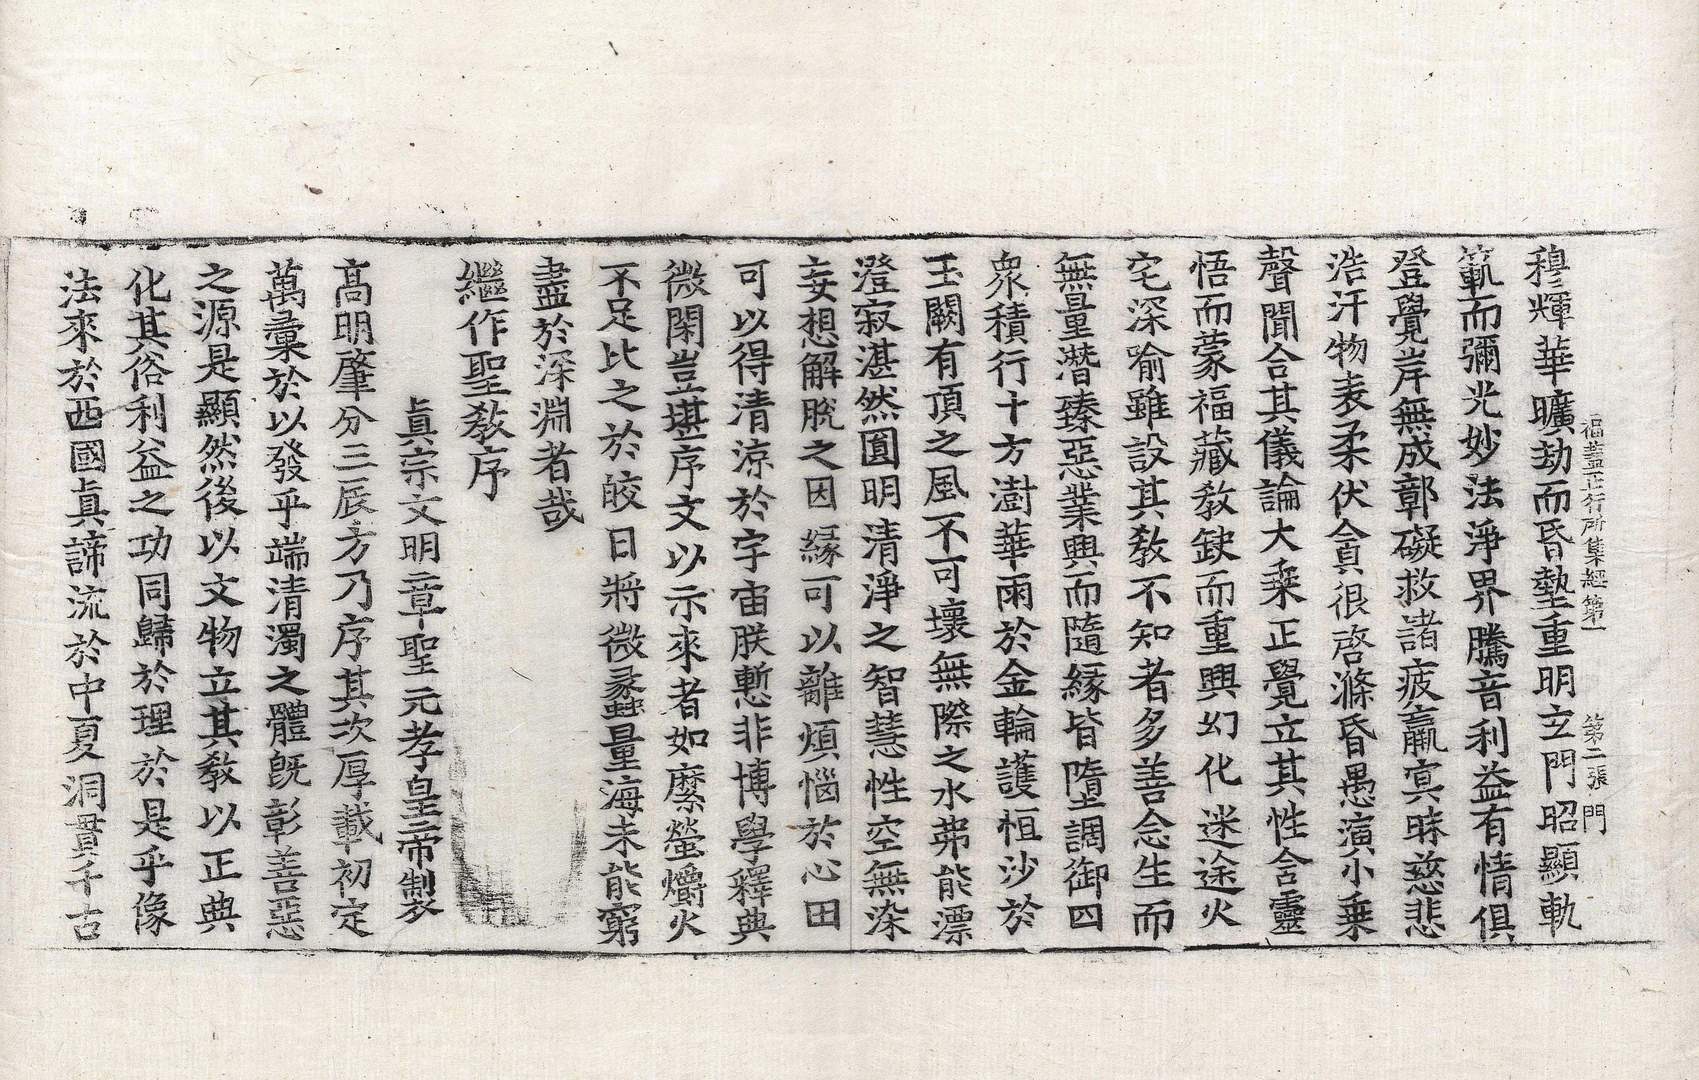 福蓋正行所集經第一　第二張　門
穆輝華曠劫而昏墊重明玄門昭顯軌
範而彌光妙法淨界騰音利益有情俱
登覺岸無成彰礙救諸疲羸冥昧慈悲
浩汗物表柔伏貪很啓滌昏愚演小乗
聲聞合其儀論大乗正覺立其性含靈
悟而蒙福藏教缺而重興幻化迷途火
宅深喻雖設其教不知者多善念生而
無量潜臻惡業興而隨縁皆墮調御四
衆積行十方澍華雨於金輪護恒沙於
玉闕有頂之風不可壞無際之水弗能漂
澄寂湛然圓明清淨之智慧性空無染
妄想解脫之因縁可以離煩惱於心田
可以得清涼於宇宙朕慙非博學釋典
微閑豈堪序文以示來者如縻螢爝火
不足比之於皎日將微蠡量海未能窮
盡於深淵者哉
繼作聖教序
真宗文明章聖元孝皇帝製
髙明肇分三辰方乃序其次厚載初定
萬彙於以發乎端清濁之體既彰善惡
之源是顯然後以文物立其教以正典
化其俗利益之功同歸於理於是乎像
法來於西國真諦流於中夏洞貫千古